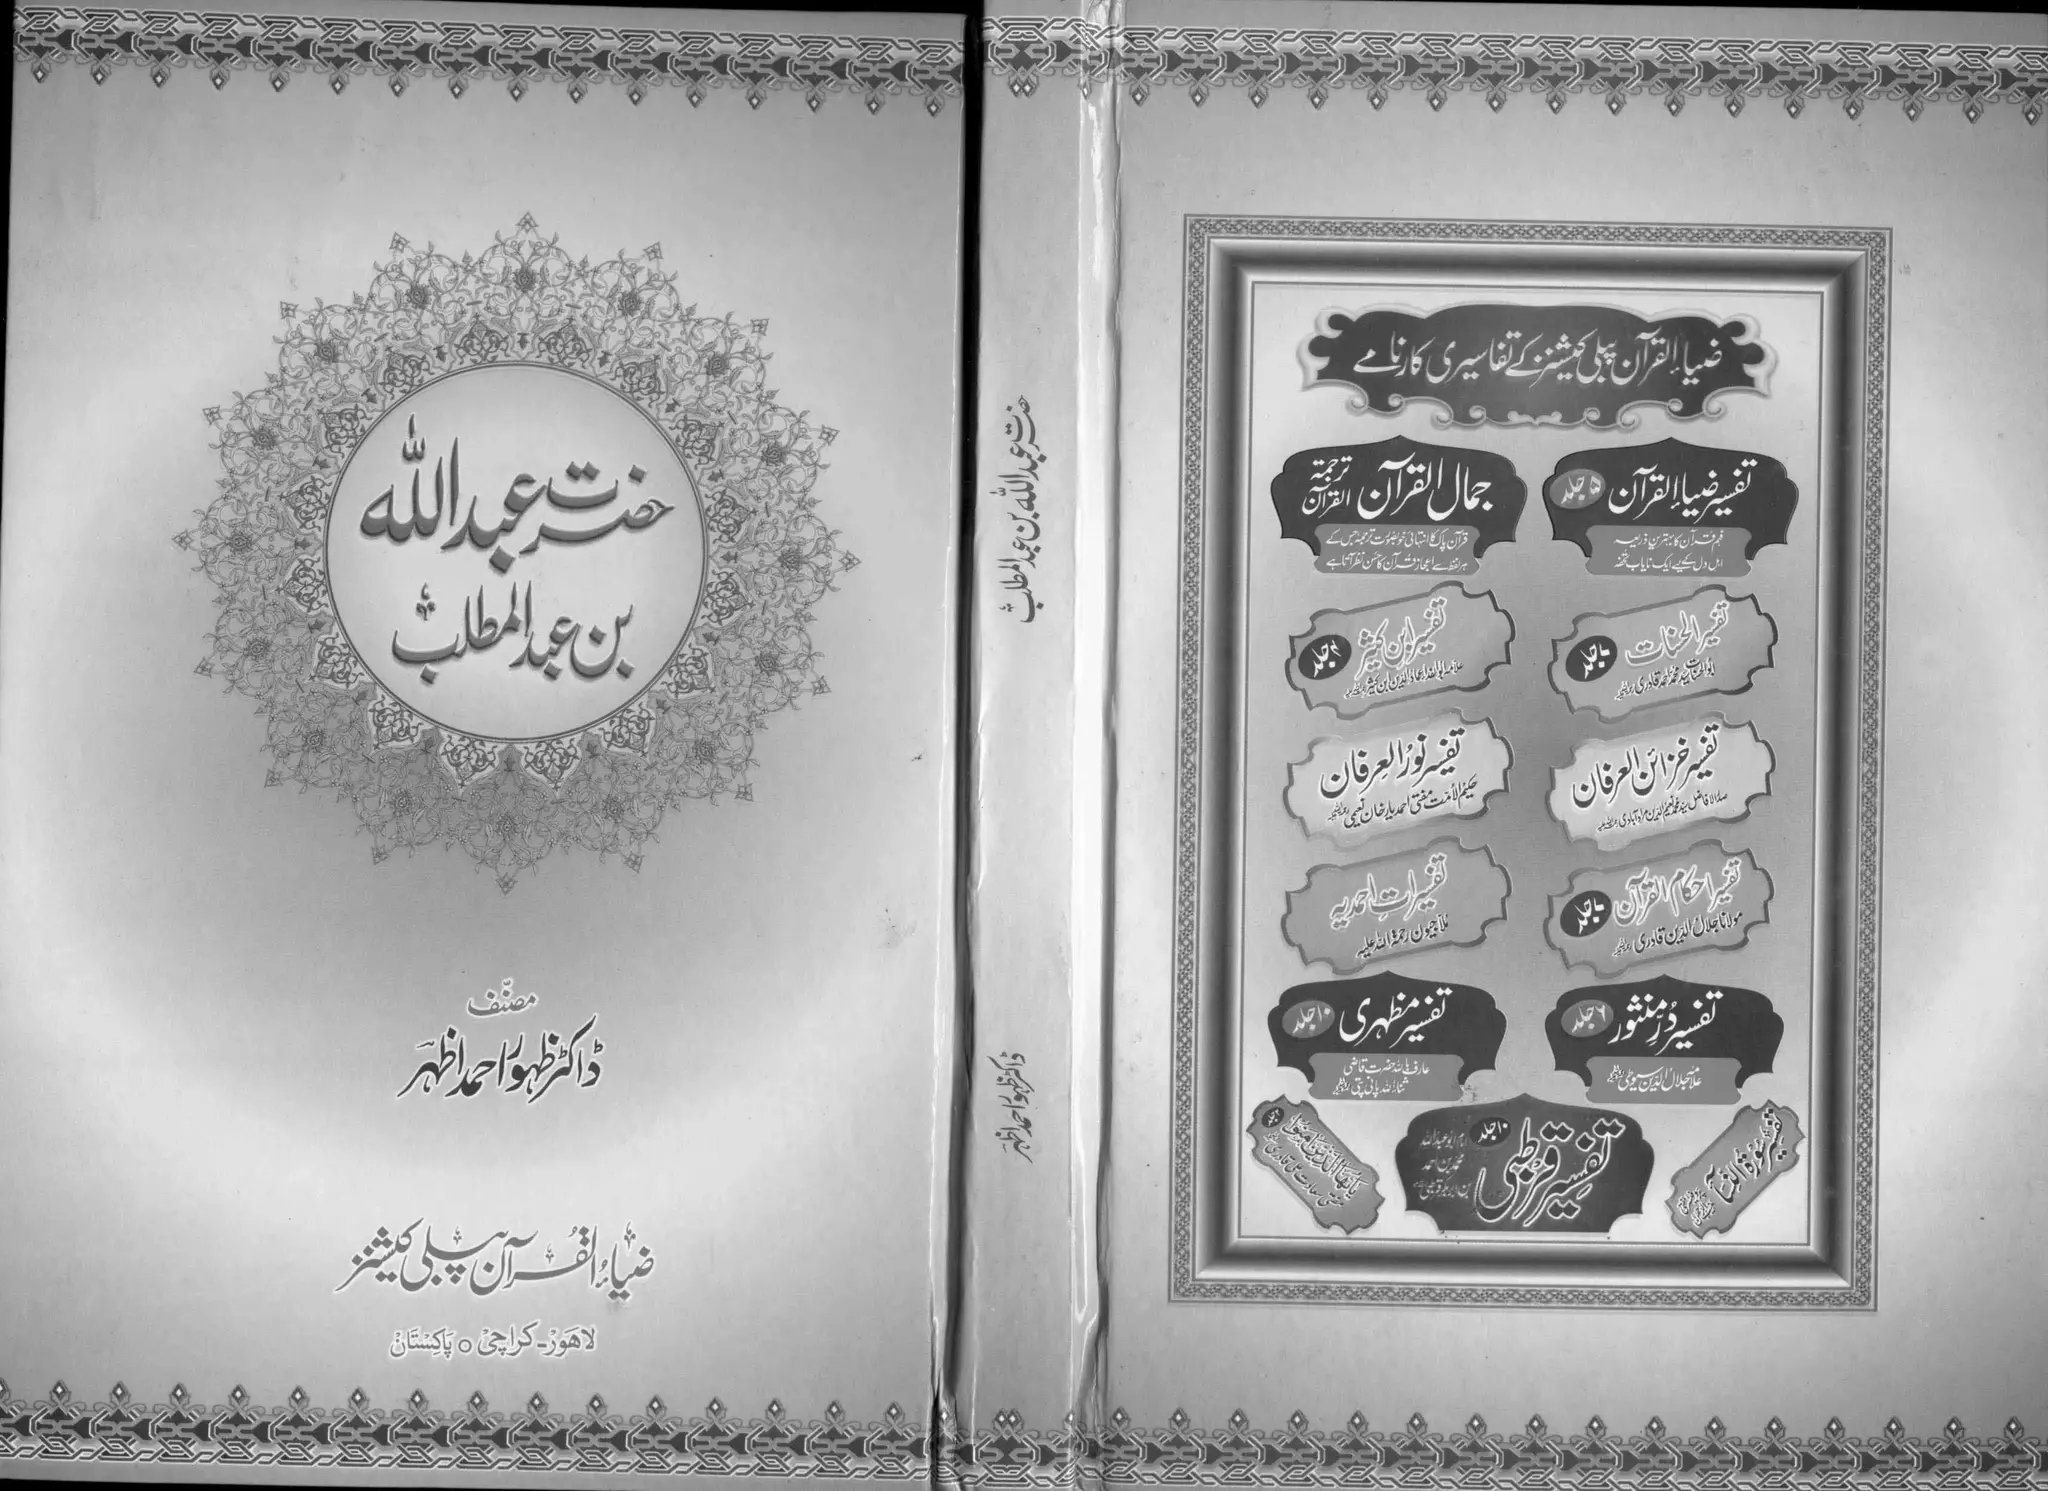 حضرت عبد اللہ
بن عبد المطلب
مصنّف
ڈاکٹر ظہور احمد اظہر
ضیاء القرآن پبلی کیشنز
لاہور - کراچی ○ پاکستان
حضرت عبد اللہ بن عبد المطلب
ڈاکٹر ظہور احمد اظہر
ضیاء القرآن پبلی کیشنز کے تفاسیری کارنامے
تفسیر ضیاء القرآن ۵ جلد
فہم قرآن کا بہترین ذریعہ
اہل دل کیلئے ایک نایاب تحفہ
جمال القرآن ترجمۃ القرآن
قرآن پاک کا انتہائی خوبصورت ترجمہ جس کے
ہر لفظ سے اعجاز قرآن کا حسن نظر آتا ہے
تفسیر الحسنات جلد
ابوالحسنات سید محمد احمد قادری
تفسیر ابن کثیر ۴ جلد
علامہ ابوالفداء عماد الدین ابن کثیر
تفسیر خزائن العرفان
صدر الافاضل سید محمد نعیم الدین مراد آبادی
تفسیر نور العرفان
حکیم الامت مفتی احمد یار خان نعیمی
تفسیر احکام القرآن جلد
مولانا جلال الدین قادری
تفسیرات احمدیہ
ملا جیون رحمۃ اللہ علیہ
تفسیر در منثور ۶ جلد
علامہ جلال الدین سیوطی
تفسیر مظہری ۱۰ جلد
عارف باللہ حضرت قاضی
ثناء اللہ پانی پتی
تفسیر سورۃ النسآء
تفسیر قرطبی ۱۰ جلد
امام ابو عبد اللہ
محمد بن احمد
بن ابوبکر قرطبی
یا ایھا الذین امنوا